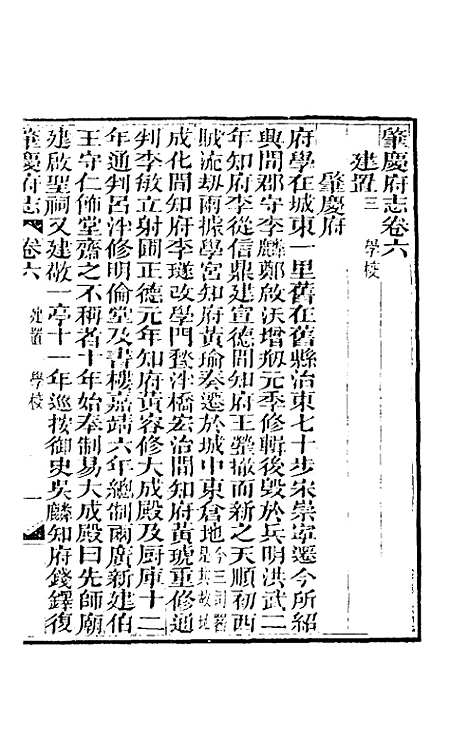 肇慶府志卷六
建置三　學校
肇慶府
府學在城東一里舊在舊縣治東七十步宋崇寧遷今所紹
興間郡守李麟鄭啟沃增刱元季修輯後毀於兵明洪武二
年知府李從信鼎建宣德間知府王瑩撤而新之天順初西
賊流劫兩據學宮知府黃瑜奏遷於城中東倉地今三司署是其故地
成化間知府李璲改學門甃泮橋宏治間知府黃琥重修通
判李敏立射圃正德元年知府黃容修大成殿及厨庫十二
年通判呂泮修明倫堂及書樓嘉靖六年總制兩廣新建伯
王守仁佈堂齋之不稱者十年始奉制易大成殿曰先師廟
建啟聖祠又建敬一亭十一年巡按御史吳麟知府錢鐸復
肇慶府志　卷六　建置　學校　一